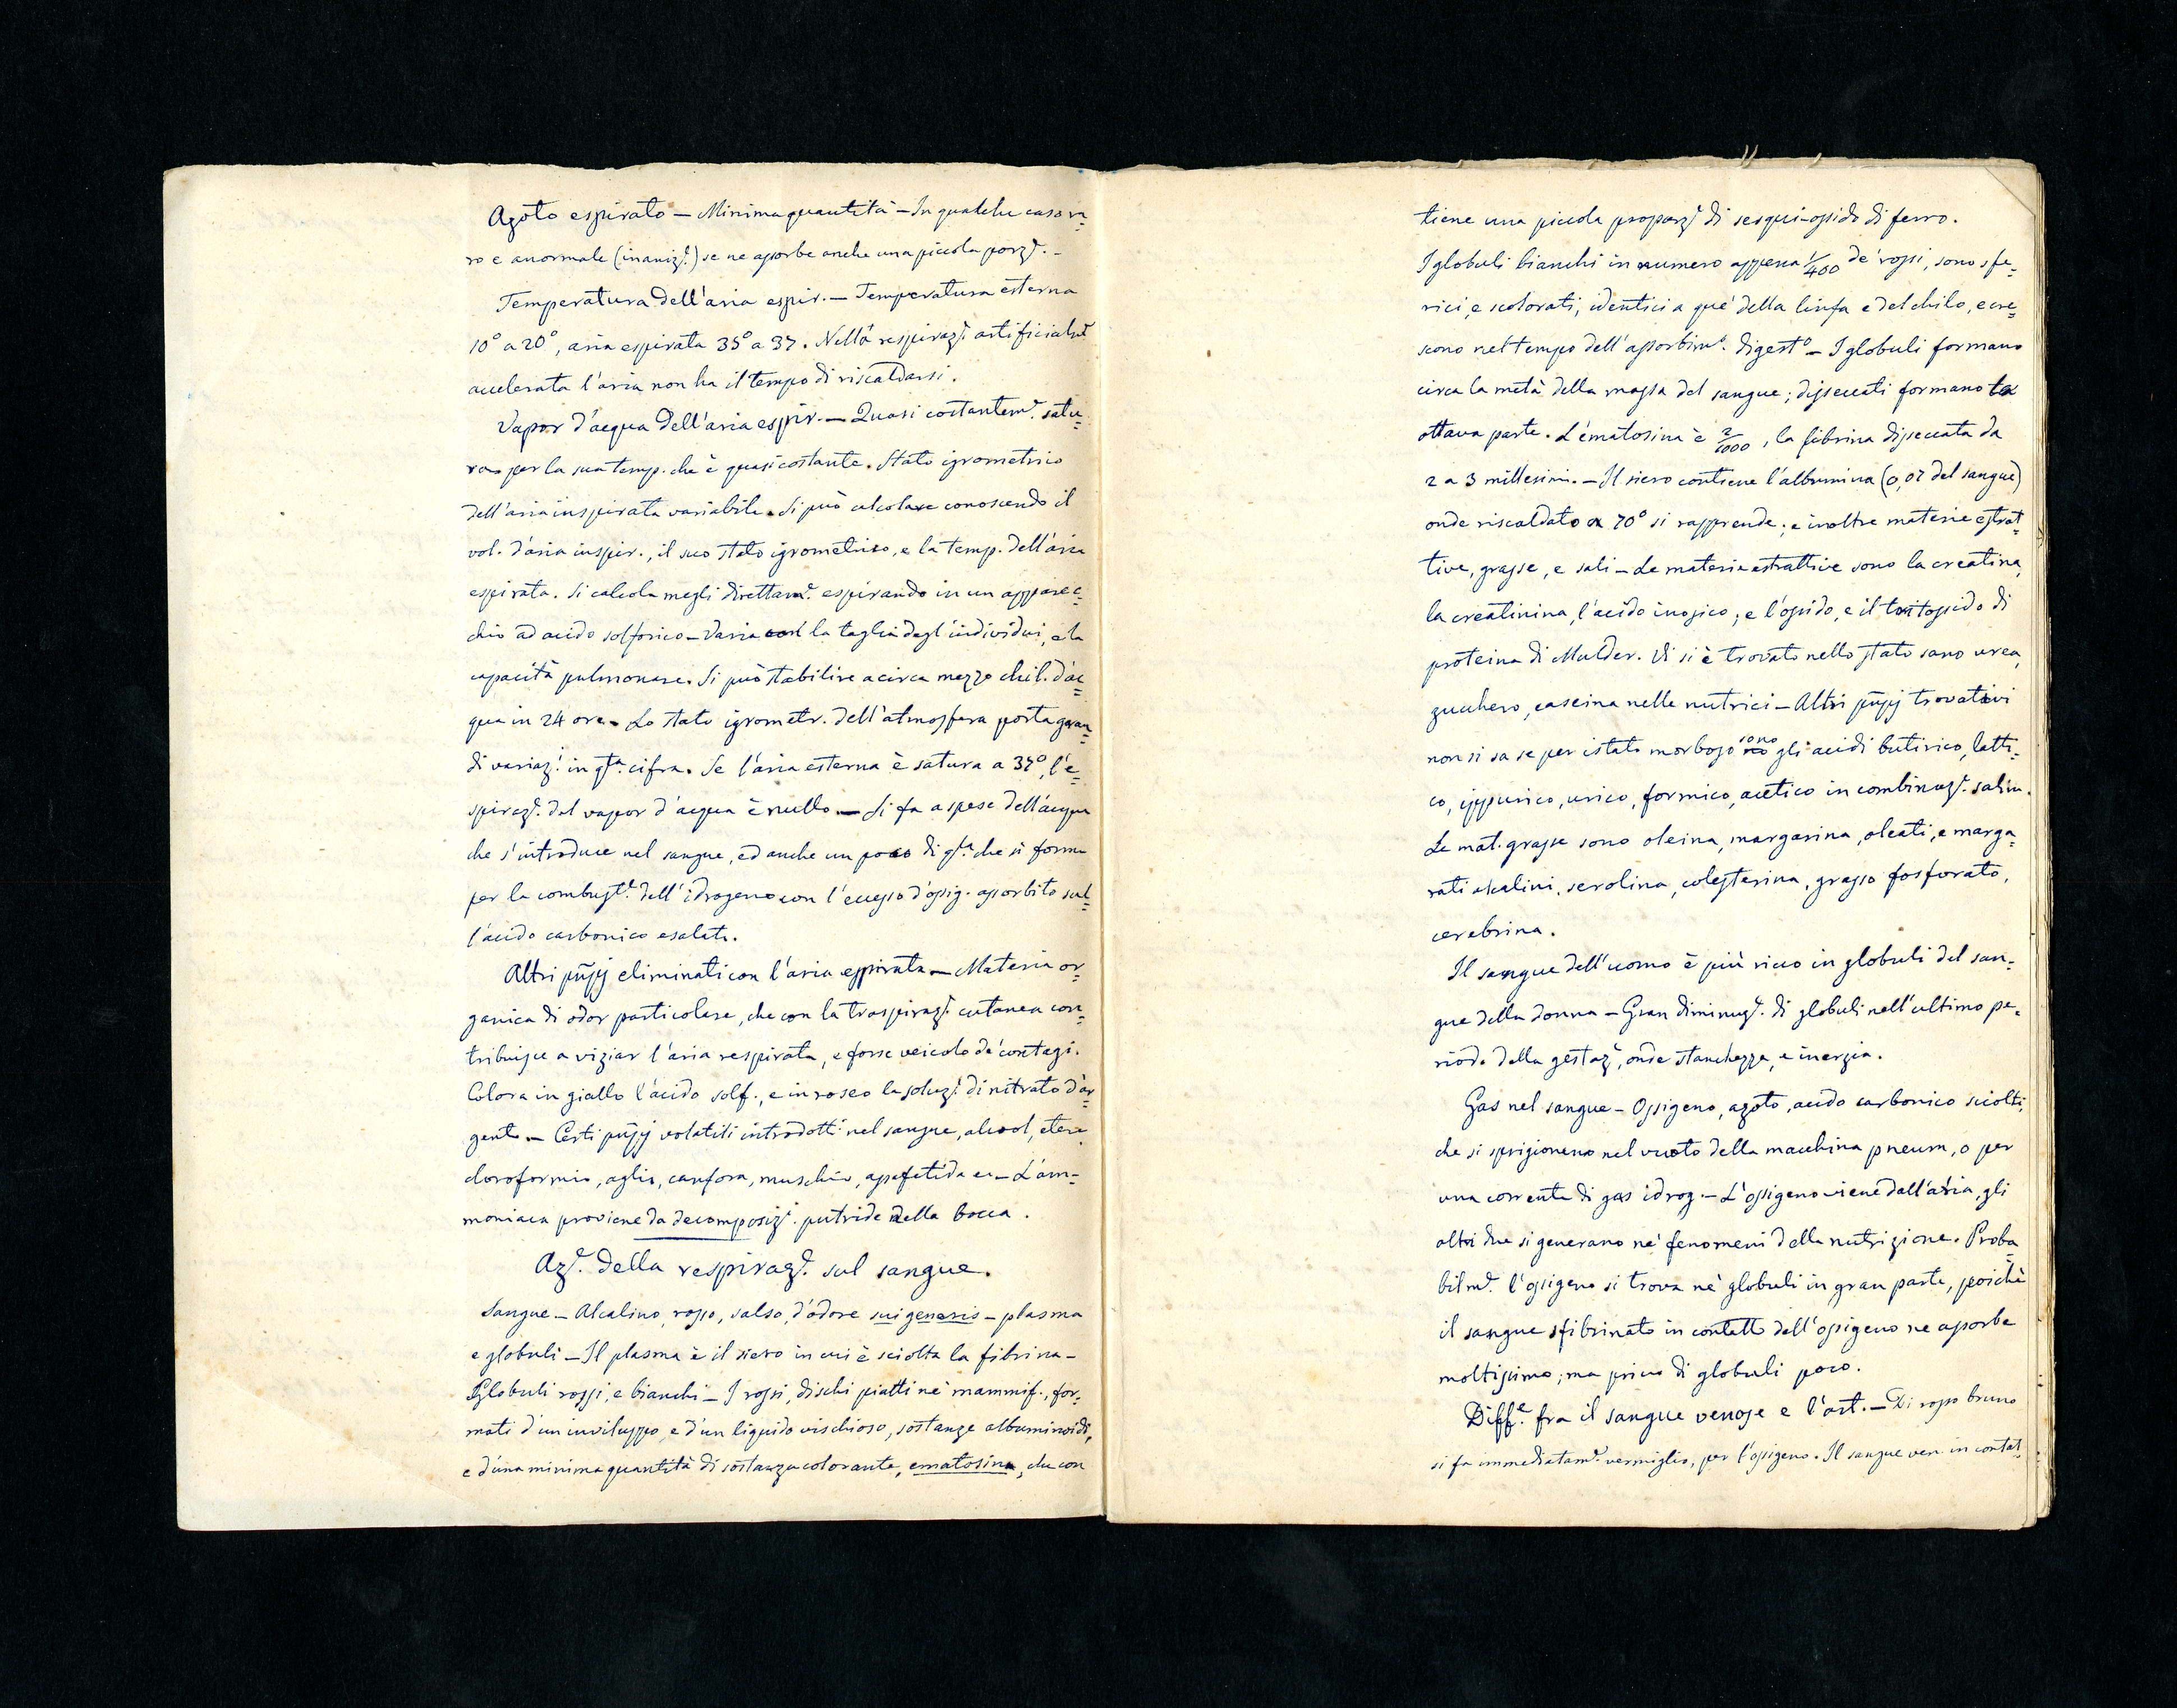 Azoto espirato — Minima quantità — In qualche caso ra=
ro e anormale (inaniz.e) se ne assorbe anche una piccola porz.e. –
Temperatura dell'aria espir. — Temperatura esterna
10° a 20°, aria espirata 35° a 37. Nella respiraz.e artificialm.e
accelerata l'aria non ha il tempo di riscaldarsi.
Vapor d'acqua dell'aria espir. — Quasi costantem.e satu=
ra per la sua temp. che è quasi costante. Stato igrometrico
dell'aria inspirata variabile. Si può calcolare conoscendo il
vol. d'aria inspir., il suo stato igrometrico, e la temp. dell'aria
espirata. Si calcola megli direttam.e espirando in un apparec=
chio ad acido solforico — Varia la taglia degl'individui, e la
capacità pulmonare. Si può stabilire a circa mezzo chil. d'ac=
qua in 24 ore. Lo stato igrometr. dell'atmosfera porta gran=
di variaz.i in q.ta cifra. Se l'aria esterna è satura a 37°, l'e=
spiraz.e del vapor d'acqua è nullo. — Si fa a spese dell'acqua
che s'introduce nel sangue, ed anche un poco di q.ta che si forma
per la combust.e dell'idrogeno con l'eccesso d'ossig. assorbito sul=
l'acido carbonico esalato.
Altri pñpj eliminati con l'aria espirata — Materia or=
ganica di odor particolare, che con la traspiraz.e cutanea con=
tribuisce a viziar l'aria respirata, e forse veicolo de' contagi.
Colora in giallo l'acido solf., e in roseo la soluz.e di nitrato d'ar=
gento — Certi pñpj volatili introdotti nel sangue, alcool, etere
cloroformio, aglio, canfora, muschio, assafetida ec — L'am=
moniaca proviene da decomposiz.i putride della bocca.
Az.e della respiraz.e sul sangue.
Sangue — Alcalino, rosso, salso, d'odore sui generis — plasma
e globuli — Il plasma è il siero in cui è sciolta la fibrina —
Globuli rossi, e bianchi — I rossi, dischi piatti ne' mammif., for=
mati d'un inviluppo, e d'un liquido vischioso, sostanze albuminoidi,
e d'una minima quantità di sostanza colorante, ematosina, che con
tiene una piccola proporz.e di sesqui-ossido di ferro.
I globuli bianchi in numero appena 1/400 de' rossi, sono sfe=
rici, e scolorati, identici a que' della linfa e del chilo, e cre=
scono nel tempo dell'assorbim.o digest.o — I globuli formano
circa la metà della massa del sangue; disseccati formano la
ottava parte. L'ematosina è 2/1000, la fibrina disseccata da
2 a 3 millesimi. — Il siero contiene l'albumina (0,07 del sangue)
onde riscaldato a 70° si rapprende; e inoltre materie estrat=
tive, grasse, e sali — Le materie estrattive sono la creatina,
la creatinina, l'acido inosico, e l'ossido, e il tritossido di
proteina di Mulder. Vi si è trovato nello stato sano urea,
zucchero, caseina nelle nutrici — Altri pñpj trovativi
non si sa se per istato morboso sono gli acidi butirico, latti=
co, ippurico, urico, formico, acetico in combinaz.e salin.
Le mat. grasse sono oleina, margarina, oleati, e marga=
rati alcalini, serolina, colesterina, grasso fosforato,
cerebrina.
Il sangue dell'uomo è più ricco in globuli del san=
gue della donna — Gran diminuz.e di globuli nell'ultimo pe=
riodo della gestaz.e, onde stanchezza, e inerzia.
Gas nel sangue — Ossigeno, azoto, acido carbonico sciolti,
che si sprigionano nel vuoto della macchina pneum, o per
una corrente di gas idrog. — L'ossigeno viene dall'aria, gli
altri due si generano ne' fenomeni della nutrizione. Proba=
bilm.e l'ossigeno si trova ne' globuli in gran parte, poichè
il sangue sfibrinato in contatto dell'ossigeno ne assorbe
moltissimo; ma privo di globuli poco.
Diff.e fra il sangue venoso e l'art. — Di rosso bruno
si fa immediatam.e vermiglio, per l'ossigeno. Il sangue ven. in contat=